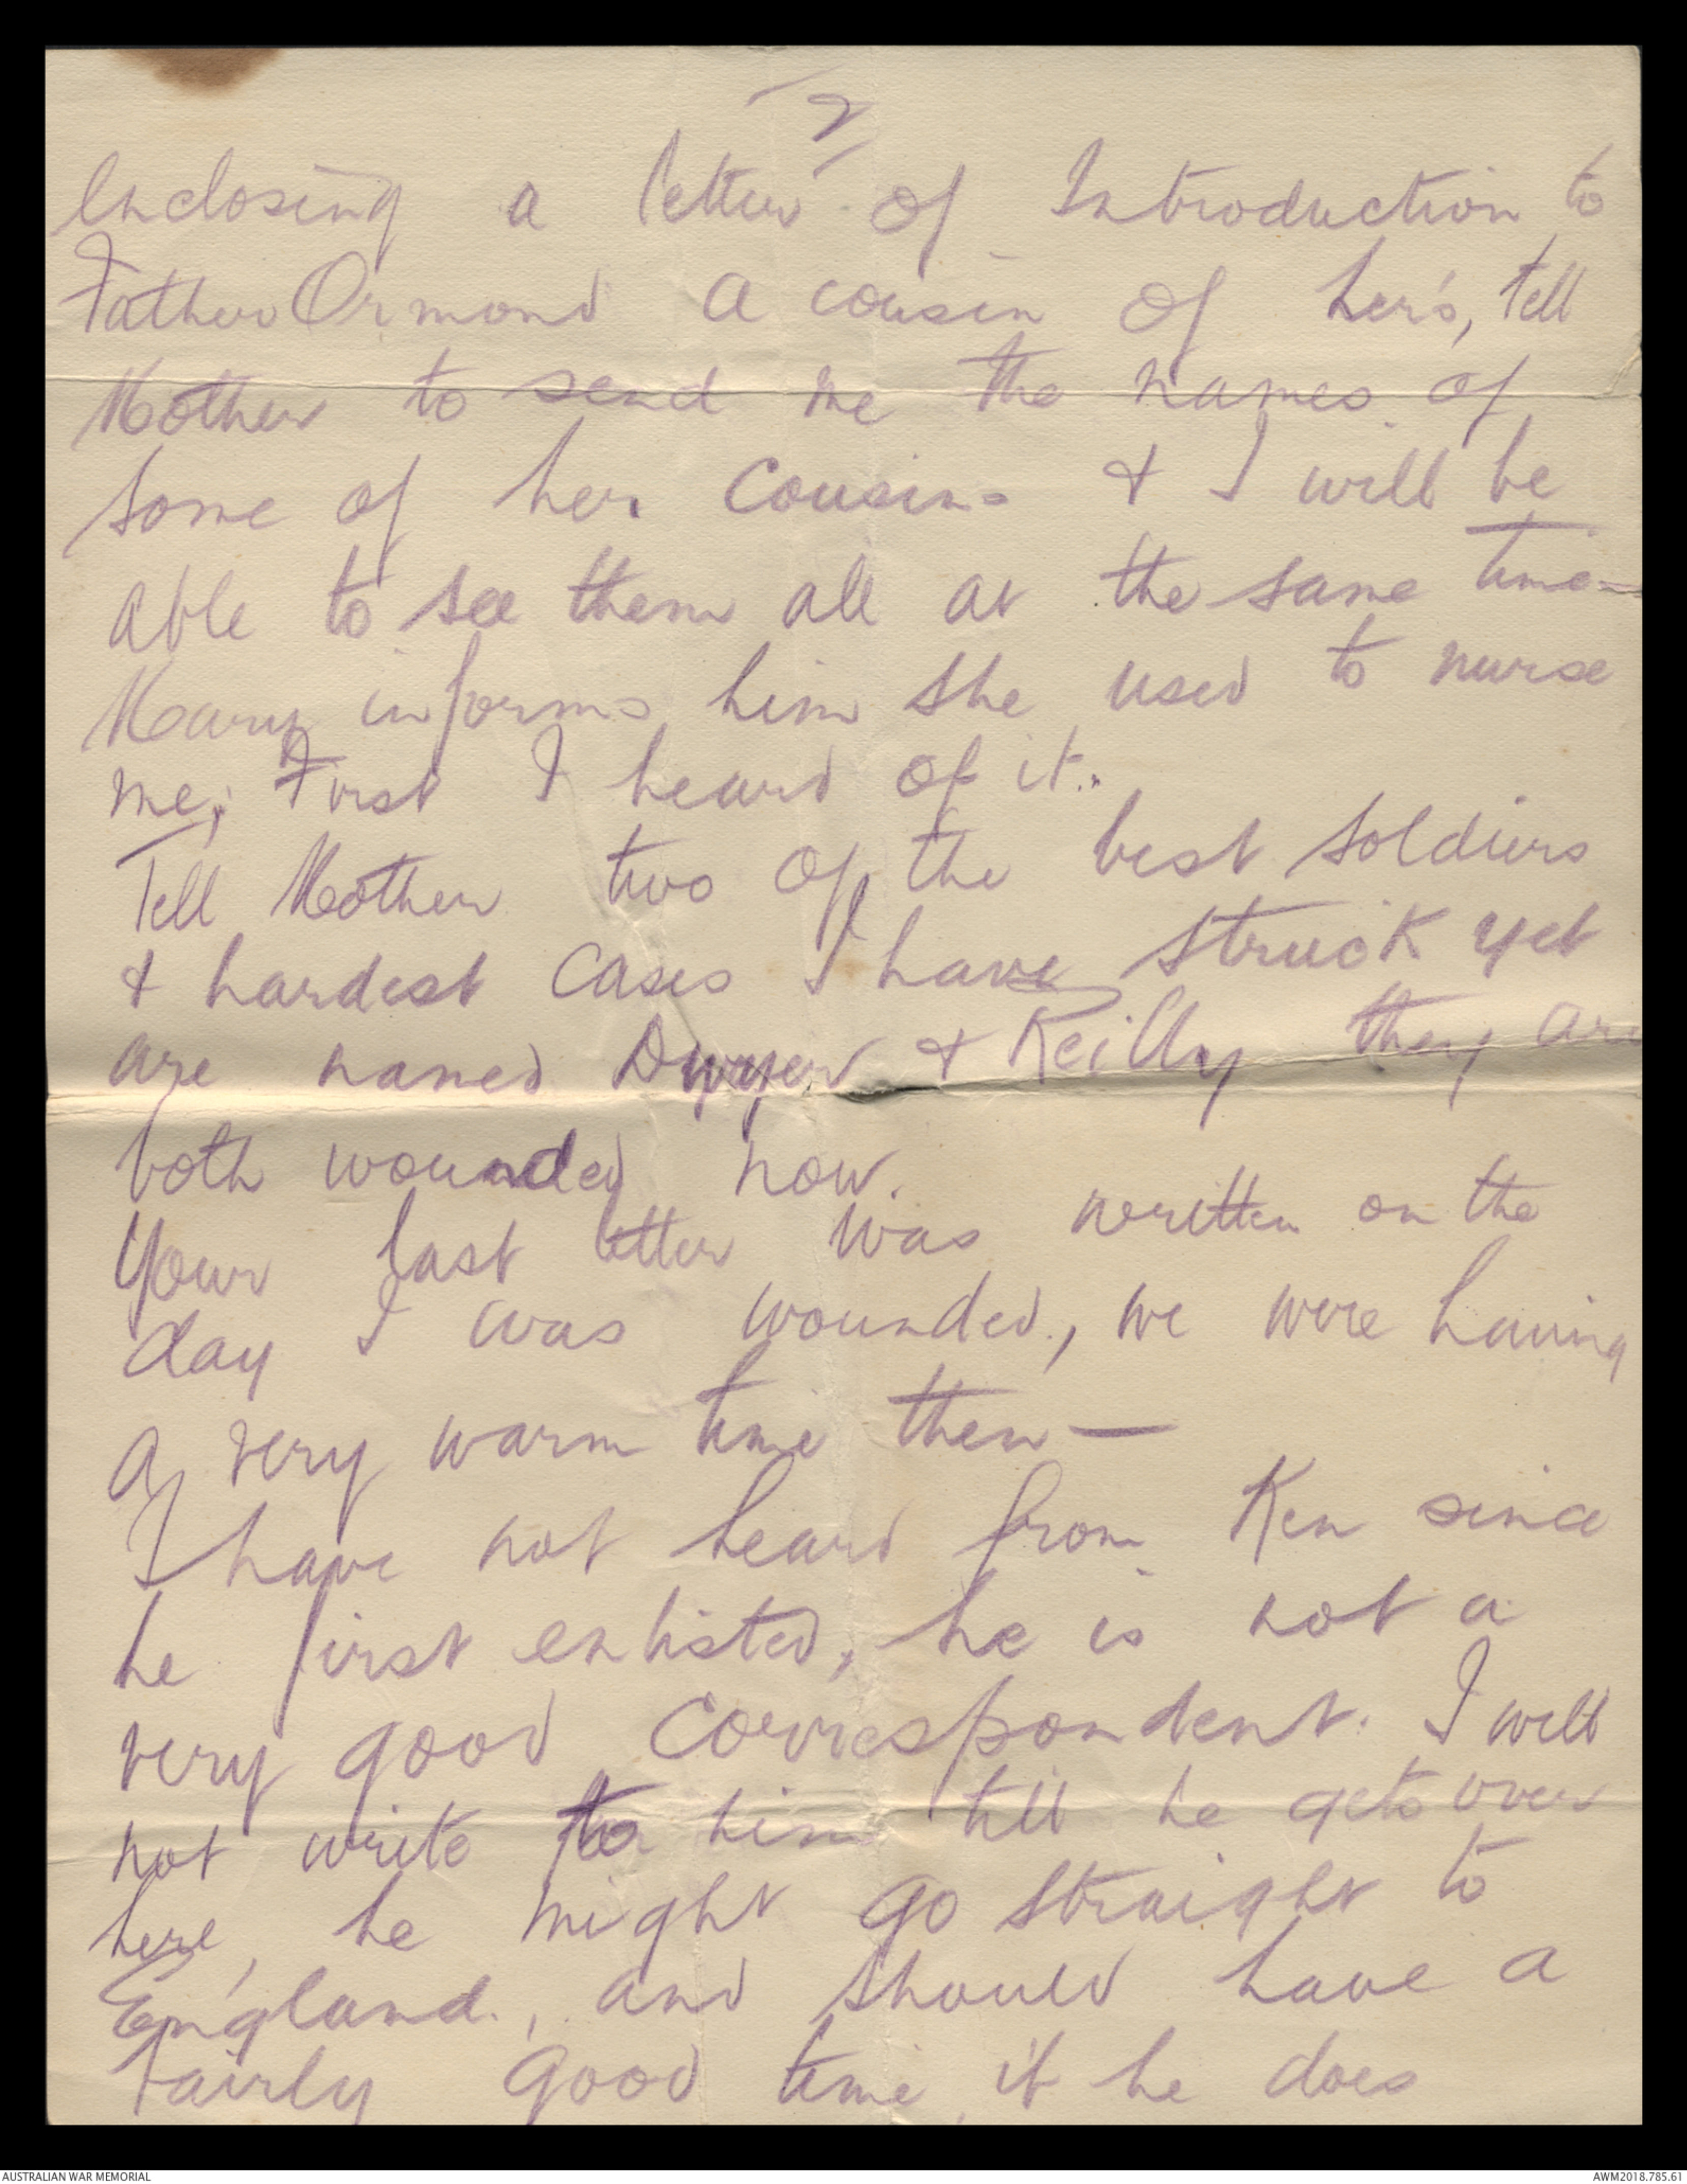 2
Enclosing a letter of Introduction to
Father Ormond a cousin of her's, tell
Mother to send me the names of
some of her Cousins & I will be
able to see them all at the same time -
Mary informs him she used to nurse
me, First I heard of it.
Tell Mother two of the best soldiers
& hardest cases I have struck yet
are named Dwyer & Reilly they are
both wounded now.
Your last letter was written on the
day I was wounded, we were having
a very warm time then —
I have not heard from Ken since
he first enlisted, he is not a
very good correspondent. I will
not write to him till he gets over
here, he might go straight to
England., and should have a
fairly good time, if he does
AUSTRALIAN WAR MEMORIAL
AWM2018.785.61